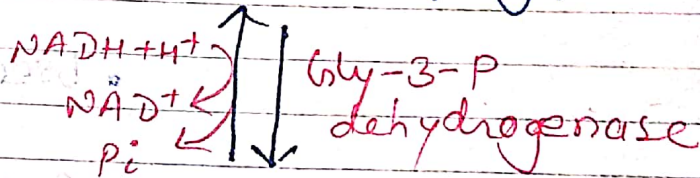 NADH+H+
NAD+
Pi
Gly-3-P
dehydrogenase